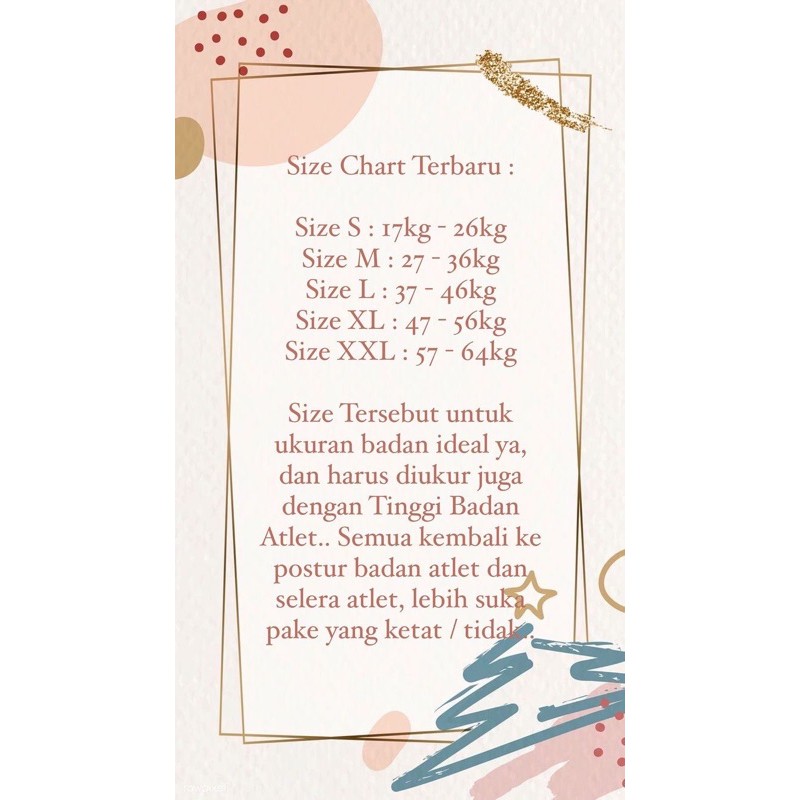 Size Chart Terbaru :
Size S : 17kg - 26kg
Size M : 27 - 36kg
Size L : 37 - 46kg
Size XL : 47 - 56kg
Size XXL : 57 - 64kg
Size Tersebut untuk
ukuran badan ideal ya,
dan harus diukur juga
dengan Tinggi Badan
Atlet.. Semua kembali ke
postur badan atlet dan
selera atlet, lebih suka
pake yang ketat / tidak..